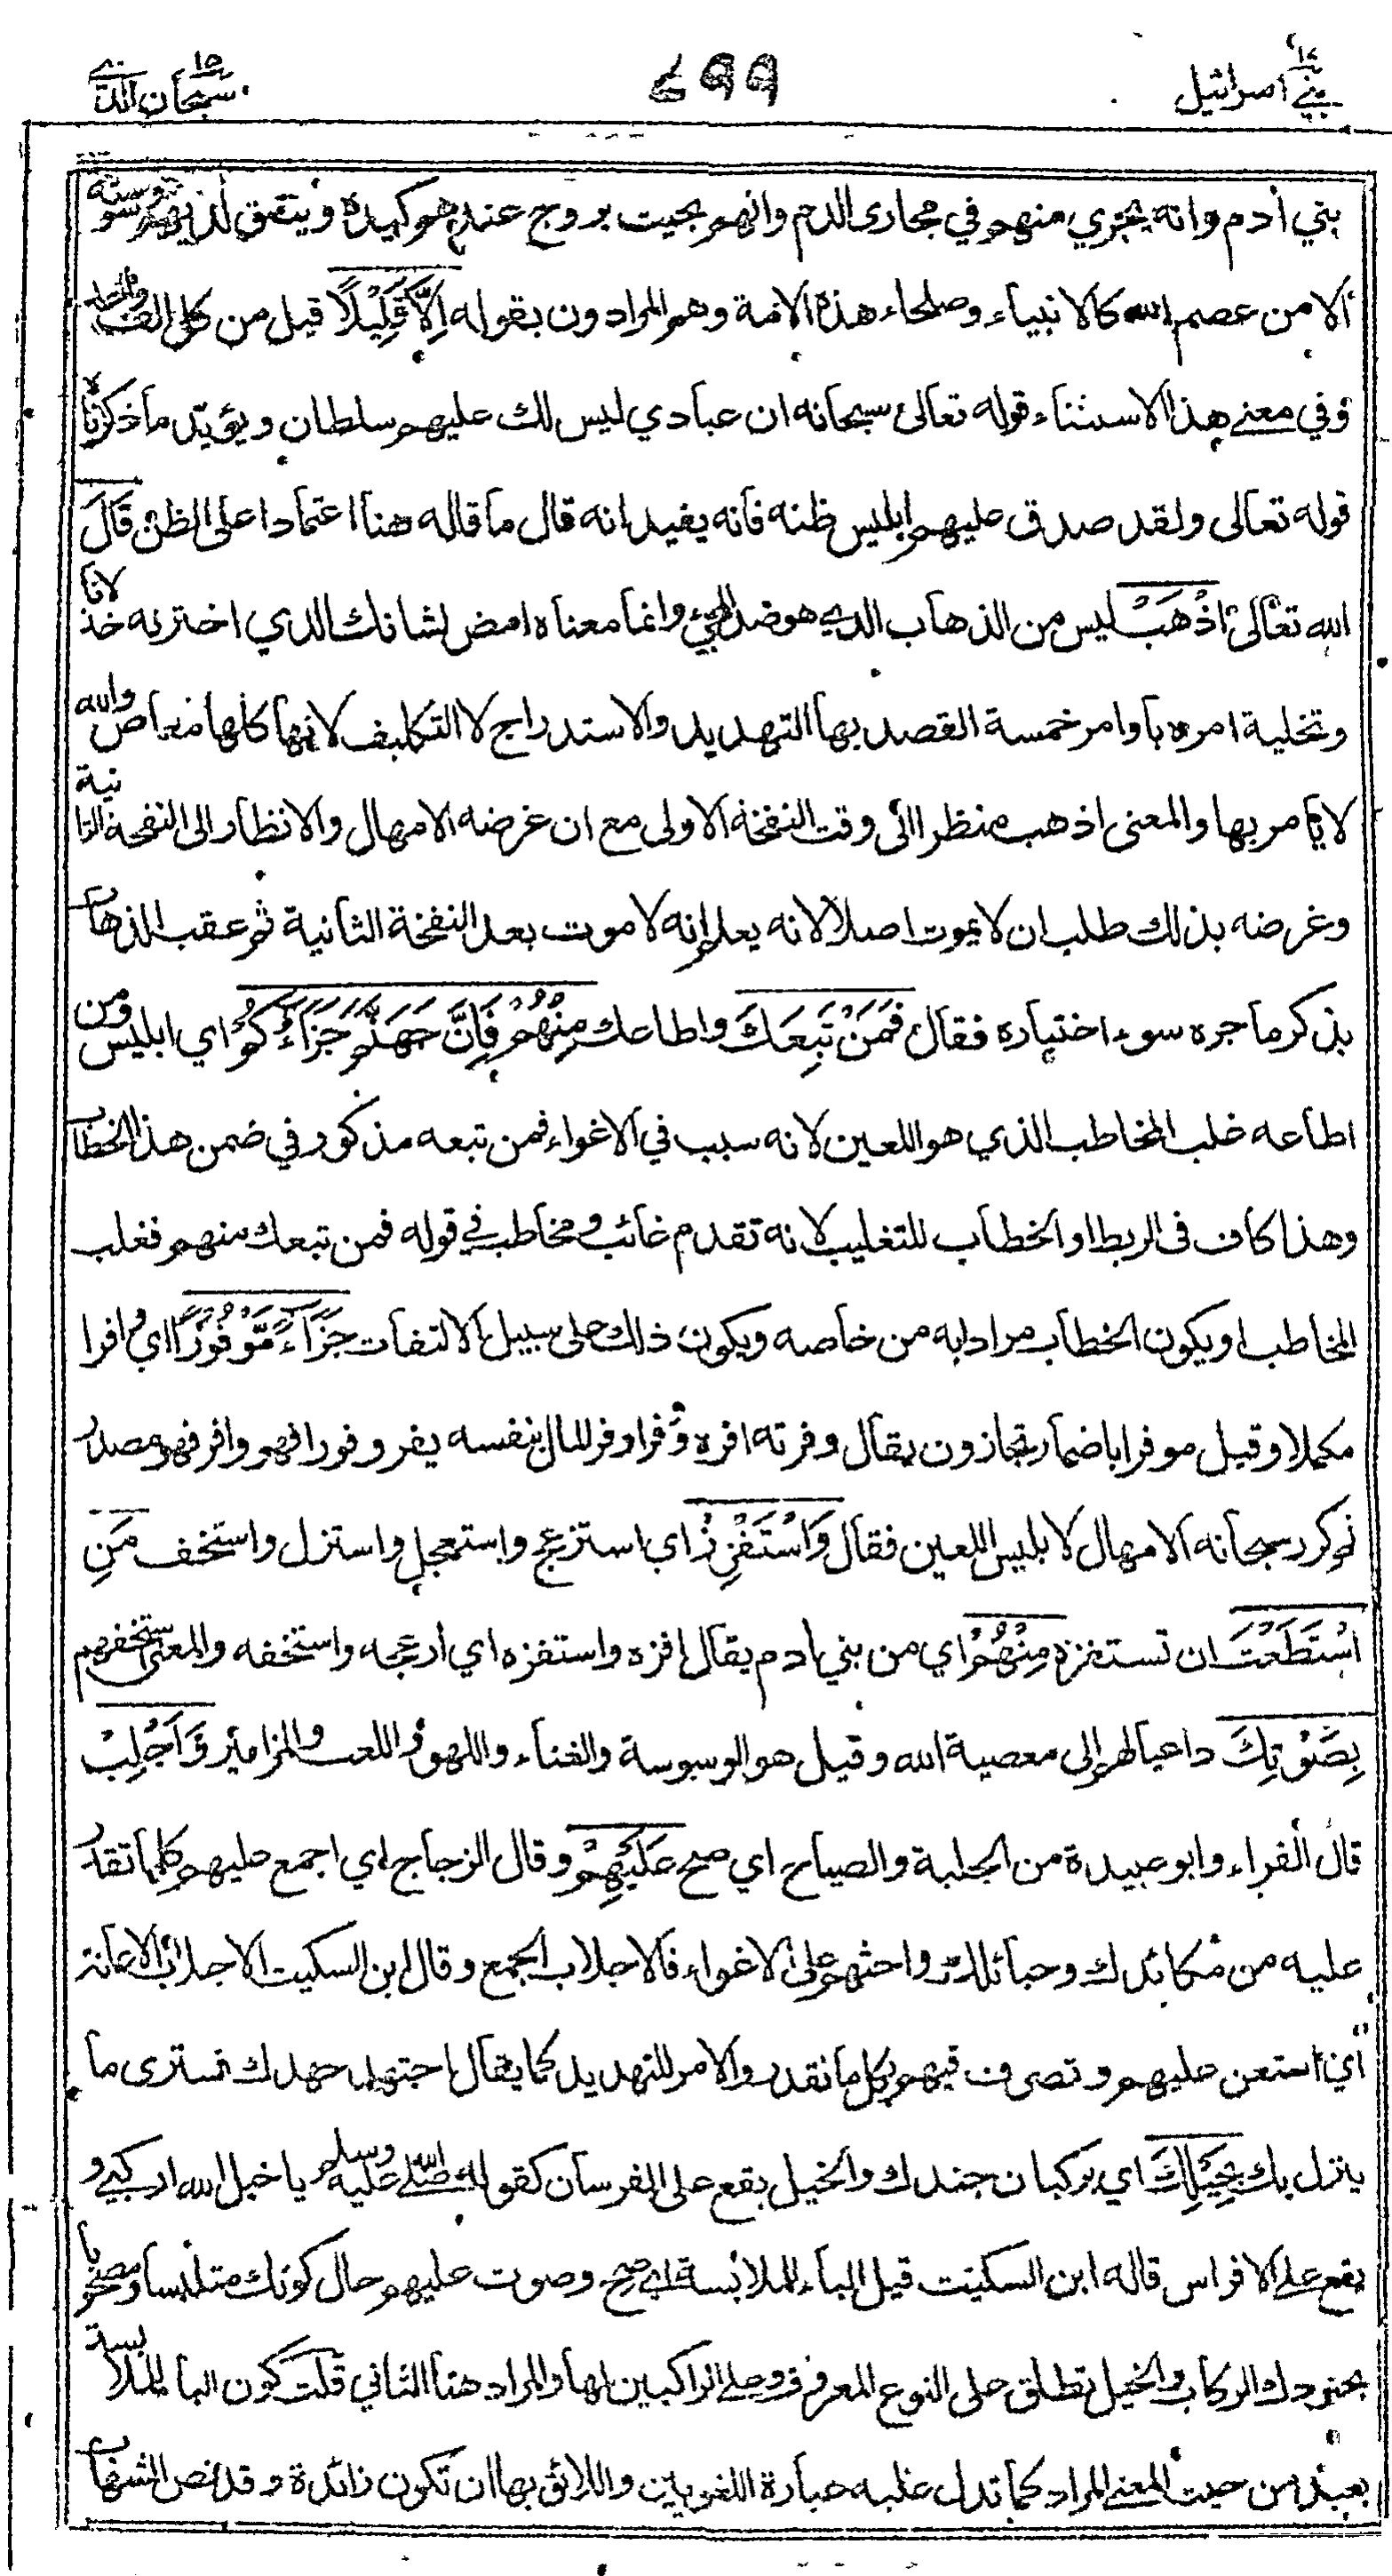 ١٧ بني اسرائيل
٤٩٩
١٥ سبحان الذي
بني أدم وانه يجري منهم في مجاري الدم وانهم بحيث يروج عندهم كيده وينفق لديهم وسوسته
الا من عصم الله كالانبياء وصلحاء هذه الامة وهم المرادون بقوله اِلَّا قَلِيْلًا قيل من كل الف واحد
وفي معنى هذا الاستثناء قوله تعالى سبحانه ان عبادي ليس لك عليهم سلطان ويؤيّد ما ذكرنا
قوله تعالى ولقد صدق عليهم ابليس ظنه فانه يفيد انه قال ما قاله هنا اعتمادا على الظن قَالَ
الله تعالى اذْهَبْ ليس من الذهاب الذي هو ضد المجئ وانما معناه امض لشانك الذي اخترته خذلانا
وتخلية امره باوامر خمسة القصد بها التهديد والاستدراج لا التكليف لانها كلها معاص والله
لا يامر بها والمعنى اذهب منظرا الى وقت النفخة الاولى مع ان غرضه الامهال والانظار الى النفخة الثانية
وغرضه بذلك طلب ان لا يموت اصلا لانه يعلم انه لا موت بعد النفخة الثانية ثم عقب الذهاب
بذكر ما جره سوء اختياره فقال فَمَنْ تَبِعَكَ واطاعك مِنْهُمْ فَاِنَّ جَهَنَّمَ جَزَاءُكُمْ اي ابليس ومن
اطاعه غلب المخاطب الذي هو اللعين لانه سبب في الاغواء فمن تبعه مذكور في ضمن هذا الخطاب
وهذا كاف في الربط او الخطاب للتغليب لانه تقدم غائب ومخاطب في قوله فمن تبعك منهم فغلب
المخاطب او يكون الخطاب مرادا به من خاصه ويكون ذلك على سبيل الالتفات جَزَاءً مَّوْفُوْرًا اي وافرا
مكملا وقيل موفرا باضمار تجازون يقال وفرته افره وَفرا ووفر المال بنفسه يفر وفورا فهو وافر فهو مصدر
ثم كرر سبحانه الامهال لابليس اللعين فقال وَاسْتَفْزِزْ اي استزعج واستعجل واستزل واستخف مَنِ
اسْتَطَعْتَ ان تستفزه مِنْهُمْ اي من بني أدم يقال افزه واستفزه اي ازعجه واستخفه والمعنى استخفهم
بِصَوْتِكَ داعيا لهم الى معصية الله وقيل هو الوسوسة والغناء واللهو واللعب والمزامير وَاَجْلِبْ
قال الفراء وابو عبيدة من الجلبة والصياح اي صح عَلَيْهِمْ وقال الزجاج اي اجمع عليهم كلما تقدر
عليه من مكائدك وحبائلك واحثهم على الاغواء فالاجلاب الجمع وقال ابن السكيت الاجلاب الاعانة
اي استعن عليهم وتصرف فيهم بكل ما تقدر والامر للتهديد كما يقال اجتهد جهدك فسترى ما
ينزل بك بِخَيْلِكَ اي بركبان جندك والخيل يقع على الفرسان كقوله صلى الله عليه وسلم يا خيل الله اركبي و
يقع على الافراس قاله ابن السكيت قيل الباء للملابسة اي صح وصوت عليهم حال كونك متلبسا ومصحوبا
بجنودك الركاب والخيل تطلق على النوع المعروف وعلى الراكبين لها والمراد هنا الثاني قلت كون الباء للملابسة
بعيد من حيث المعنى المراد كما تدل عليه عبارة اللغويين واللائق بها ان تكون زائدة وقد نص الشهاب